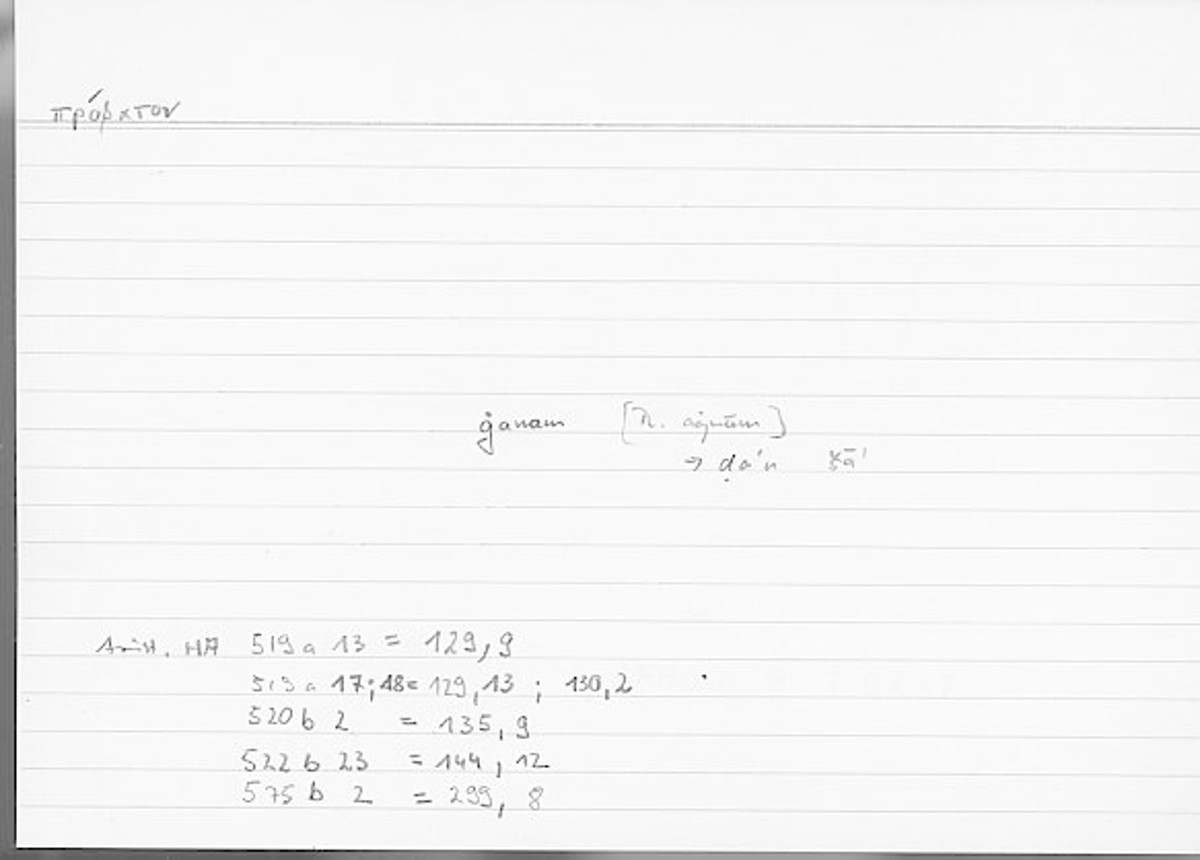 πρόβατον
ġanam [n. agnīnum]
→ ḍa'n šā'
Arist. HA 519 a 13 = 129,9
519 a 17;18 = 129,13 ; 130,2
520 b 2 = 135,9
522 b 23 = 144,12
575 b 2 = 299,8